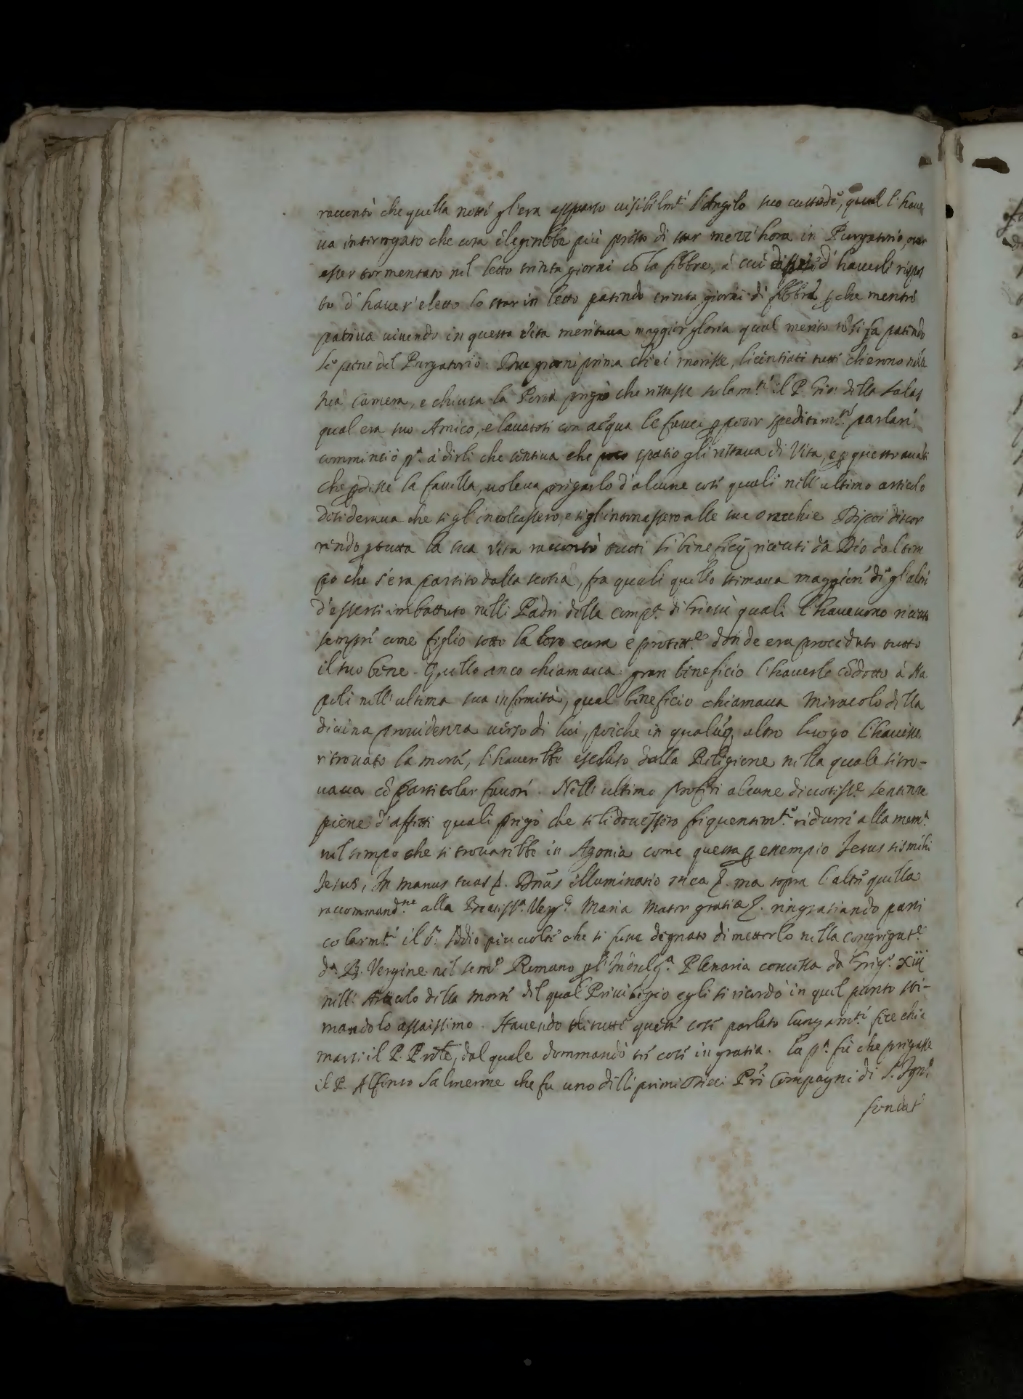 raccontò che quella notte gl'era apparso visibilmte l'Angelo suo custode, qual l'have
va interrogato che cosa elegerebbe più presto di star mezz'hora in Purgatorio, over
esser tormentato nel letto trinta giorni cō la febbre, à cui d'haverli rispo
sto d'haver eletto lo star in letto patindo trinta giorni di febbre, che mentre
pativa vivendo in questa vita meritava maggior gloria qual merito nō si fa patindo
le pene del Purgatorio. Due giorni prima ch'ei morisse, licentiati tutti ch'erano nella
sua Camera, e chiusa la Porta pregò che restasse solamte il P. Gio: della
qual era suo Amico, e lavatosi con acqua le fauci p poter speditamte parlare
comminciò pa à dirli che sentiva che poco spatio gli restava di Vita, e p questo avanti
che pdesse la favella, voleva pregarlo d'alcune cose quali nell'ultimo articolo
desiderava che se gl'incolcassero, e se gl'intornassero alle sue orecchie. Di poi discor
rendo p tutta la sua vita raccontò tutti li beneficij ricevuti da Dio dal tem
po che s'era partito dalla Scotia, fra quali quello stimava maggiore di gl'altri
d'essersi imbattuto nelli Padri della Compa di Giesù quali l'havevono ricevuto
sempre come figlio sotto la loro cura e protette donde era proceduto tutto
il suo bene. Quello anco chiamava gran beneficio l'haverlo cōdotto à Na
poli nell'ultima sua infirmità, qual beneficio chiamava miracolo della
divina providenza verso di lui, poiche in qualūq altro luogo l'havesse
ritrovato la morte, l'haverebbe escluso dalla Religione nella quale si tro-
vava cō particolar favori. Nell'ultimo proferì alcune divotisse sentenze
piene d'affetti quali pregò che se li dovessero frequentemte ridurre alla mema
nel tempo che si trovarebbe in Agonia come questa p essempio Jesus sis mihi
Jesus, In manus tuas &. Dñus illuminatio mea &. ma sopra l'altre quella
raccommandne alla Beatissa Verge Maria Mater gratiæ &. ringratiando parti
colarmte il S. Iddio più volte che si fusse degnato di metterlo nella congregate
da B. Vergine nel semo Romano p l'Indulga Plenaria concessa da Grego XIII
nell'Articolo della morte del qual Privilegio egli si ricordò in quel punto sti-
mandolo assaissimo. Havendo di tutte queste cose parlato lungamte fece chia
mare il P. Prole, dal quale dommandò tre cose in gratia. La pa fù che pregasse
il P. Alfonso Salmerone che fu uno delli primi Dieci Pri Compagni di S. Igno
fondat